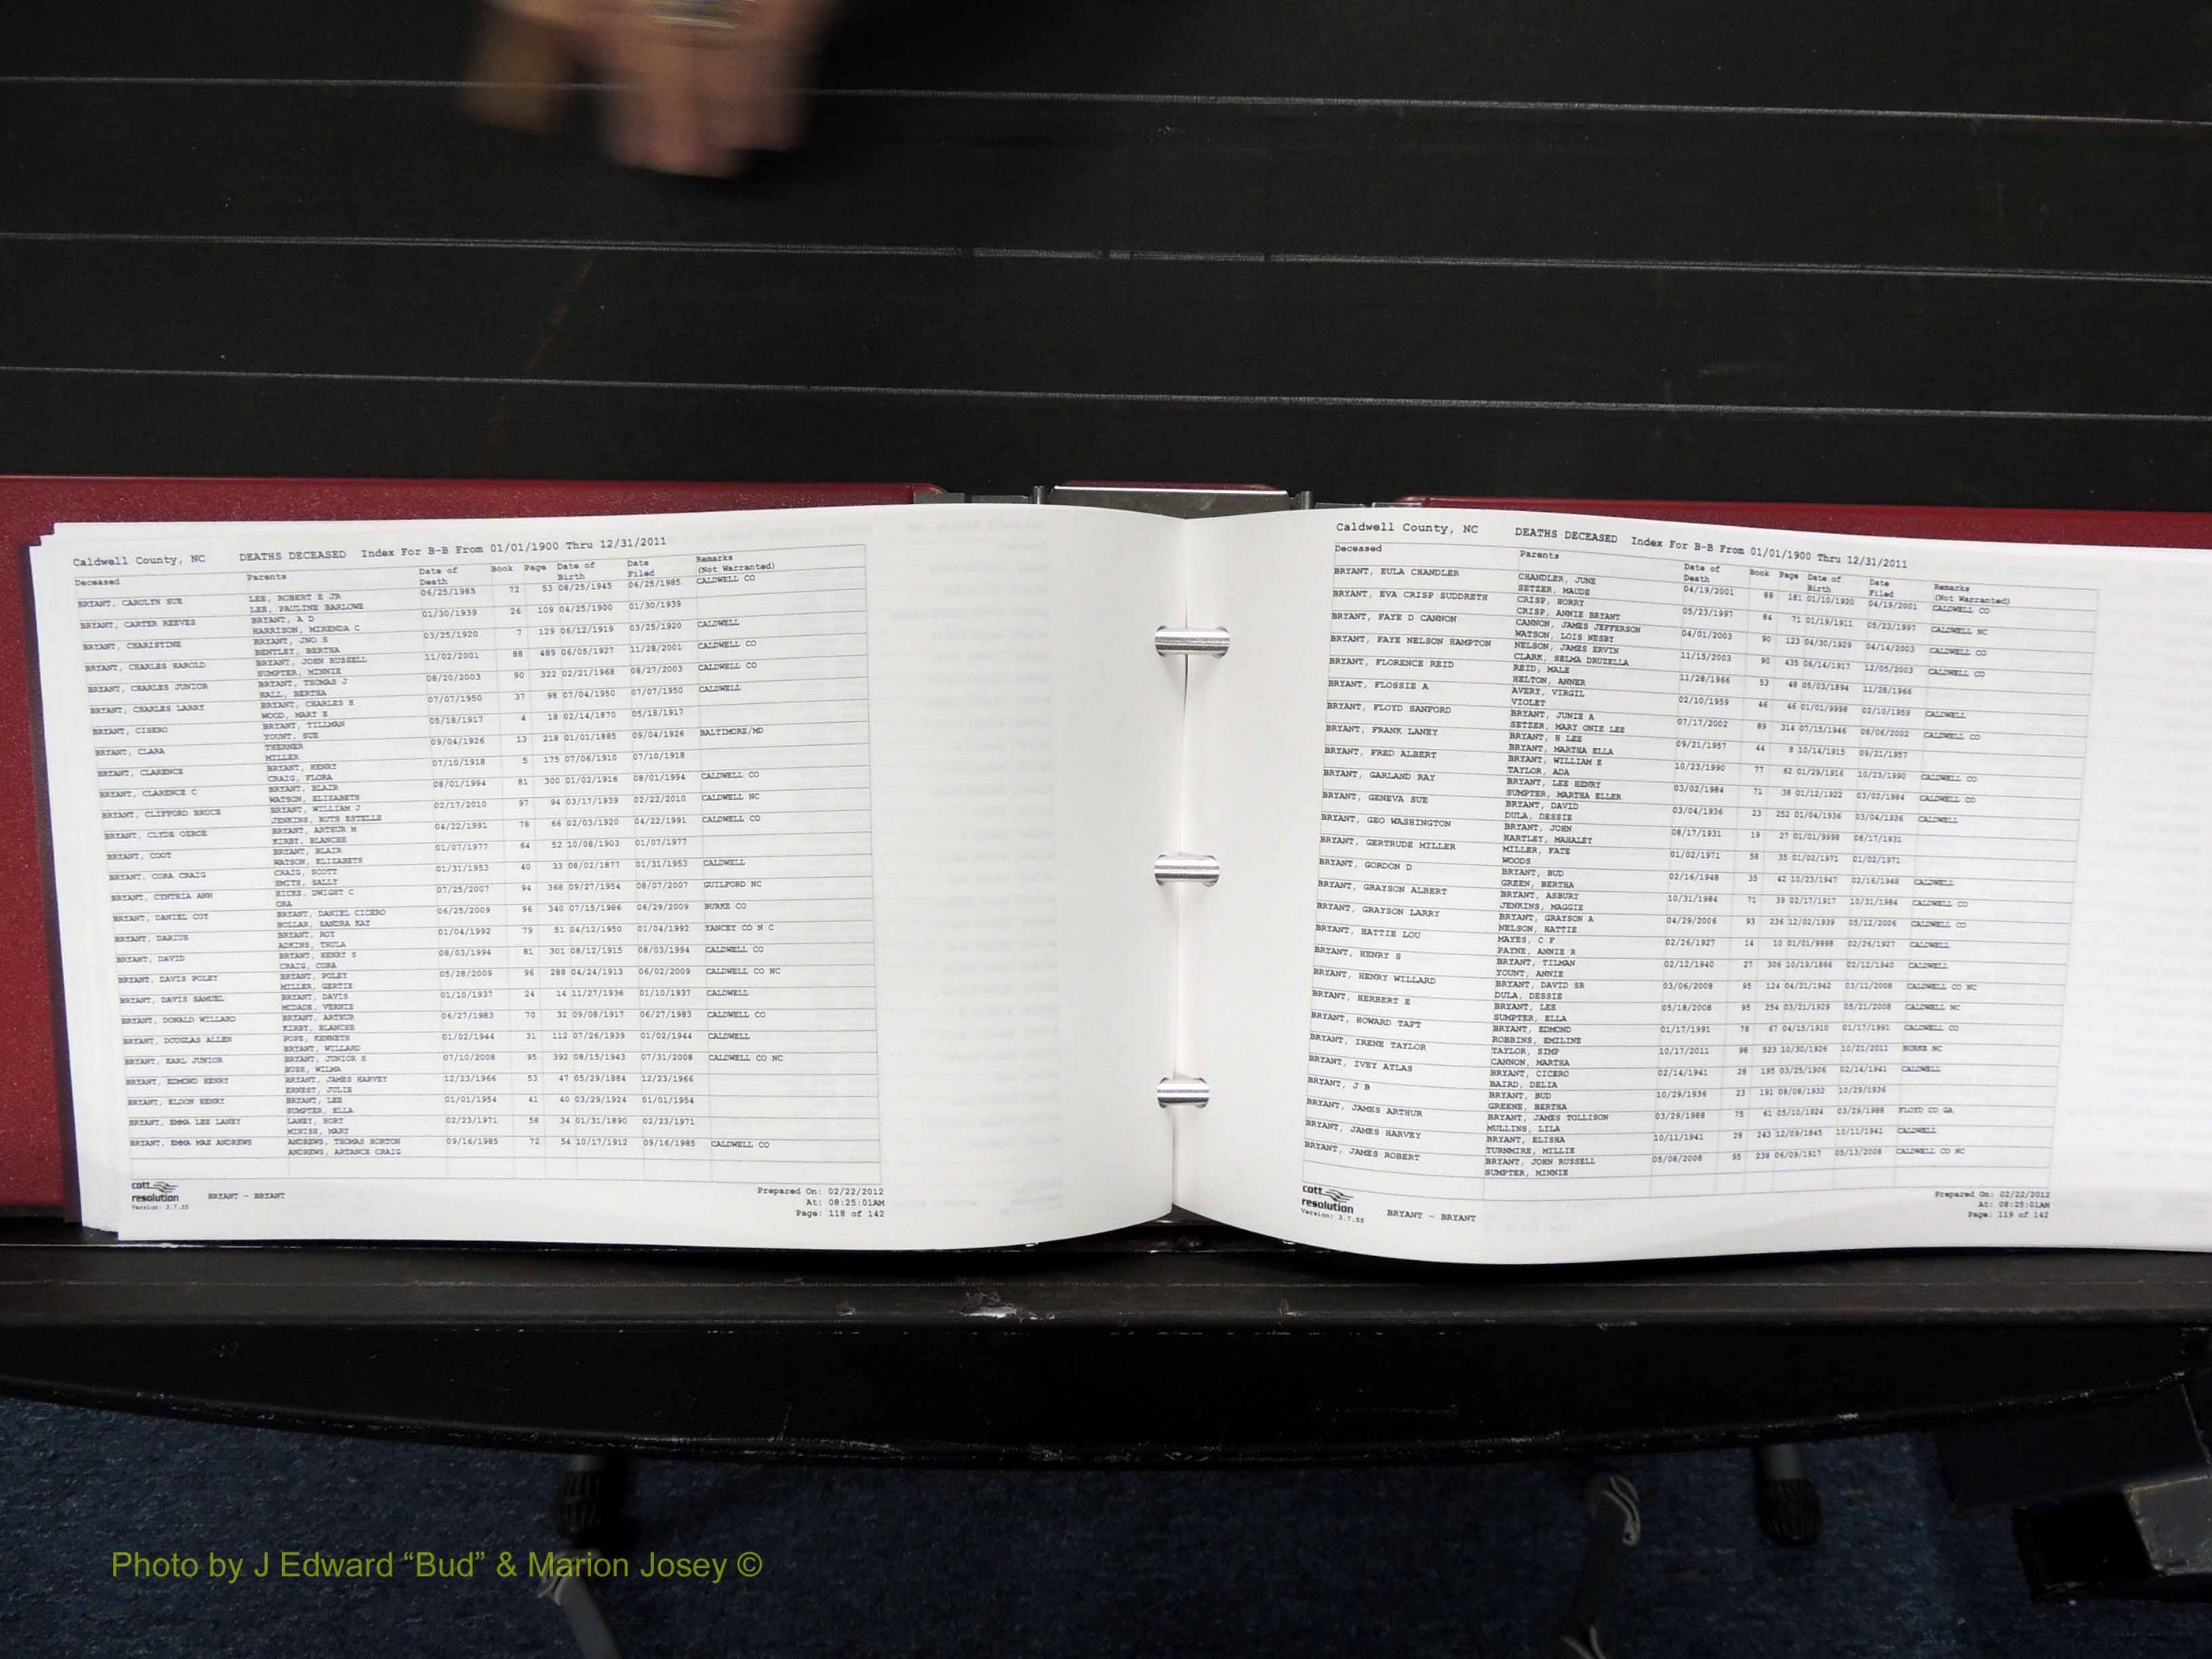 Caldwell County, NC DEATHS DECEASED Index For B-B From 01/01/1900 Thru 12/31/2011
Deceased Parents Date of Death Book Page Date of Birth Date Filed Remarks (Not Warranted)
BRYANT, CAROLYN SUE LEE, ROBERT E JR 06/25/1985 72 53 08/25/1945 06/25/1985 CALDWELL CO
LEE, PAULINE BARLOWE
BRYANT, CARTER REEVES BRYANT, A D 01/30/1939 26 109 04/25/1900 01/30/1939
HARRISON, MIRENDA C
BRYANT, CHARISTINE BRYANT, JNO S 03/25/1920 7 129 06/12/1919 03/25/1920 CALDWELL
BENTLEY, BERTHA
BRYANT, CHARLES HAROLD BRYANT, JOHN RUSSELL 11/02/2001 88 489 06/05/1927 11/28/2001 CALDWELL CO
SUMPTER, MINNIE
BRYANT, CHARLES JUNIOR BRYANT, THOMAS J 08/20/2003 90 322 02/21/1968 08/27/2003 CALDWELL CO
HALL, BERTHA
BRYANT, CHARLES LARRY BRYANT, CHARLES H 07/07/1950 37 98 07/04/1950 07/07/1950 CALDWELL
WOOD, MARY E
BRYANT, CISERO BRYANT, TILLMAN 05/18/1917 4 18 02/14/1870 05/18/1917
YOUNT, SUE
BRYANT, CLARA THERNER 09/04/1926 13 218 01/01/1885 09/04/1926 BALTIMORE/MD
MILLER
BRYANT, CLARENCE BRYANT, HENRY 07/10/1918 5 175 07/06/1910 07/10/1918
CRAIG, FLORA
BRYANT, CLARENCE C BRYANT, BLAIR 08/01/1994 81 300 01/02/1916 08/01/1994 CALDWELL CO
WATSON, ELIZABETH
BRYANT, CLIFFORD BRUCE BRYANT, WILLIAM J 02/17/2010 97 94 03/17/1939 02/22/2010 CALDWELL NC
JENKINS, RUTH ESTELLE
BRYANT, CLYDE OEROE BRYANT, ARTHUR M 04/22/1991 78 66 02/03/1920 04/22/1991 CALDWELL CO
KIRBY, BLANCHE
BRYANT, COOT BRYANT, BLAIR 01/07/1977 64 52 10/08/1903 01/07/1977
WATSON, ELIZABETH
BRYANT, CORA CRAIG CRAIG, SCOTT 01/31/1953 40 33 08/02/1877 01/31/1953 CALDWELL
SMITH, SALLY
BRYANT, CYNTHIA ANN HICKS, DWIGHT C 07/25/2007 94 368 09/27/1954 08/07/2007 GUILFORD NC
ORA
BRYANT, DANIEL COY BRYANT, DANIEL CICERO 06/25/2009 96 340 07/15/1986 06/29/2009 BURKE CO
HOLLAR, SANDRA KAY
BRYANT, DARIUS BRYANT, ROY 01/04/1992 79 51 04/12/1950 01/04/1992 YANCEY CO N C
ADKINS, TRULA
BRYANT, DAVID BRYANT, HENRY S 08/03/1994 81 301 08/12/1915 08/03/1994 CALDWELL CO
CRAIG, CORA
BRYANT, DAVIS POLEY BRYANT, POLEY 05/28/2009 96 288 04/24/1913 06/02/2009 CALDWELL CO NC
MILLER, GERTIE
BRYANT, DAVIS SAMUEL BRYANT, DAVIS 01/10/1937 24 14 11/27/1936 01/10/1937 CALDWELL
MCDADE, VERNIE
BRYANT, DONALD WILLARD BRYANT, ARTHUR 06/27/1983 70 32 09/08/1917 06/27/1983 CALDWELL CO
KIRBY, BLANCHE
BRYANT, DOUGLAS ALLEN POPE, KENNETH 01/02/1944 31 112 07/26/1939 01/02/1944 CALDWELL
BRYANT, WILLARD
BRYANT, EARL JUNIOR BRYANT, JUNIOR S 07/10/2008 95 392 08/15/1943 07/31/2008 CALDWELL CO NC
BUSH, WILMA
BRYANT, EDMOND HENRY BRYANT, JAMES HARVEY 12/23/1966 53 47 05/29/1884 12/23/1966
ERNEST, JULIE
BRYANT, ELDON HENRY BRYANT, LEE 01/01/1954 41 40 03/29/1924 01/01/1954
SUMPTER, ELLA
BRYANT, EMMA LEE LANEY LANEY, HORT 02/23/1971 58 34 01/31/1890 02/23/1971
MINISH, MARY
BRYANT, EMMA MAE ANDREWS ANDREWS, THOMAS HORTON 09/16/1985 72 54 10/17/1912 09/16/1985 CALDWELL CO
ANDREWS, ARTANCE CRAIG
cott
resolution BRYANT - BRYANT
Version: 3.7.55
Prepared On: 02/22/2012
At: 08:25:01AM
Page: 118 of 142
Caldwell County, NC DEATHS DECEASED Index For B-B From 01/01/1900 Thru 12/31/2011
Deceased Parents Date of Death Book Page Date of Birth Date Filed Remarks (Not Warranted)
BRYANT, EULA CHANDLER CHANDLER, JUNE 04/19/2001 88 181 01/10/1920 04/19/2001 CALDWELL CO
SETZER, MAUDE
BRYANT, EVA CRISP SUDDRETH CRISP, HORRY 05/23/1997 84 71 01/19/1911 05/23/1997 CALDWELL NC
CRISP, ANNIE BRYANT
BRYANT, FAYE D CANNON CANNON, JAMES JEFFERSON 04/01/2003 90 123 04/30/1929 04/14/2003 CALDWELL CO
WATSON, LOIS NESBY
BRYANT, FAYE NELSON HAMPTON NELSON, JAMES ERVIN 11/15/2003 90 435 06/14/1917 12/05/2003 CALDWELL CO
CLARK, SELMA DRUZELLA
BRYANT, FLORENCE REID REID, MALE 11/28/1966 53 48 05/03/1894 11/28/1966
HELTON, ANNER
BRYANT, FLOSSIE A AVERY, VIRGIL 02/10/1959 46 46 01/01/9998 02/10/1959 CALDWELL
VIOLET
BRYANT, FLOYD SANFORD BRYANT, JUNIE A 07/17/2002 89 314 07/15/1946 08/06/2002 CALDWELL CO
SETZER, MARY ONIE LEE
BRYANT, FRANK LANEY BRYANT, H LEE 09/21/1957 44 8 10/14/1915 09/21/1957
BRYANT, MARTHA ELLA
BRYANT, FRED ALBERT BRYANT, WILLIAM E 10/23/1990 77 62 01/29/1916 10/23/1990 CALDWELL CO
TAYLOR, ADA
BRYANT, GARLAND RAY BRYANT, LEE HENRY 03/02/1984 71 38 01/12/1922 03/02/1984 CALDWELL CO
SUMPTER, MARTHA ELLER
BRYANT, GENEVA SUE BRYANT, DAVID 03/04/1936 23 252 01/04/1936 03/04/1936 CALDWELL
DULA, DESSIE
BRYANT, GEO WASHINGTON BRYANT, JOHN 08/17/1931 19 27 01/01/9998 08/17/1931
HARTLEY, MAHALEY
BRYANT, GERTRUDE MILLER MILLER, FATE 01/02/1971 58 35 01/02/1971 01/02/1971
WOODS
BRYANT, GORDON D BRYANT, BUD 02/16/1948 35 42 10/23/1947 02/16/1948 CALDWELL
GREEN, BERTHA
BRYANT, GRAYSON ALBERT BRYANT, ASBURY 10/31/1984 71 39 02/17/1917 10/31/1984 CALDWELL CO
JENKINS, MAGGIE
BRYANT, GRAYSON LARRY BRYANT, GRAYSON A 04/29/2006 93 236 12/02/1939 05/12/2006 CALDWELL CO
NELSON, HATTIE
BRYANT, HATTIE LOU MAYES, C F 02/26/1927 14 10 01/01/9998 02/26/1927 CALDWELL
PAYNE, ANNIE R
BRYANT, HENRY S BRYANT, TILMAN 02/12/1940 27 306 10/19/1866 02/12/1940 CALDWELL
YOUNT, ANNIE
BRYANT, HENRY WILLARD BRYANT, DAVID SR 03/06/2008 95 124 04/21/1942 03/11/2008 CALDWELL CO NC
DULA, DESSIE
BRYANT, HERBERT E BRYANT, LEE 05/18/2008 95 254 03/21/1929 05/21/2008 CALDWELL NC
SUMPTER, ELLA
BRYANT, HOWARD TAFT BRYANT, EDMOND 01/17/1991 78 67 04/15/1910 01/17/1991 CALDWELL CO
ROBBINS, EMILINE
BRYANT, IRENE TAYLOR TAYLOR, SIMP 10/17/2011 98 523 10/30/1926 10/21/2011 BURKE NC
CANNON, MARTHA
BRYANT, IVEY ATLAS BRYANT, CICERO 02/14/1941 28 195 03/25/1906 02/14/1941 CALDWELL
BAIRD, DELIA
BRYANT, J B BRYANT, BUD 10/29/1936 23 191 08/08/1932 10/29/1936
GREENE, BERTHA
BRYANT, JAMES ARTHUR BRYANT, JAMES TOLLISON 03/29/1988 75 61 05/10/1924 03/29/1988 FLOYD CO GA
MULLINS, LILA
BRYANT, JAMES HARVEY BRYANT, ELISHA 10/11/1941 28 243 12/09/1845 10/11/1941 CALDWELL
TURNMIRE, MILLIE
BRYANT, JAMES ROBERT BRYANT, JOHN RUSSELL 05/08/2008 95 238 06/09/1917 05/13/2008 CALDWELL CO NC
SUMPTER, MINNIE
cott
resolution BRYANT - BRYANT
Version: 3.7.55
Prepared On: 02/22/2012
At: 08:25:01AM
Page: 119 of 142
Photo by J Edward “Bud” & Marion Josey ©